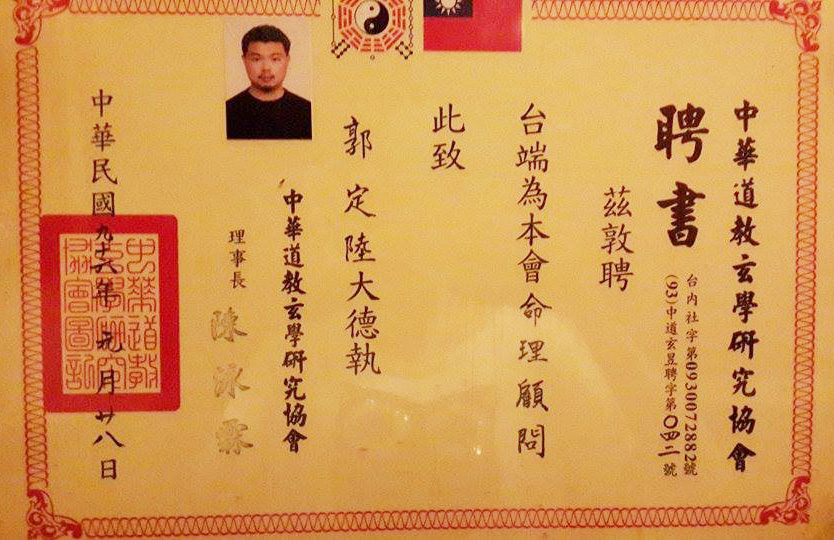 中華道教玄學研究協會
聘書
台內社字第0930072882號
(93)中道玄昱聘字第〇四二號
茲敦聘
台端為本會命理顧問
此致
郭定陸大德執
中華道教玄學研究協會
理事長 陳泳霖
中華民國九十六年元月廿八日
中華道教玄學研究協會圖記